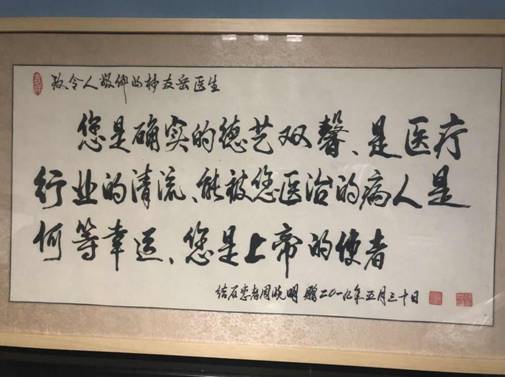 致令人敬仰的杨友岳医生
您是确实的德艺双馨、是医疗
行业的清流、能被您医治的病人是
何等幸运、您是上帝的使者
结石患者周晓明 赠二〇一九年五月三十日